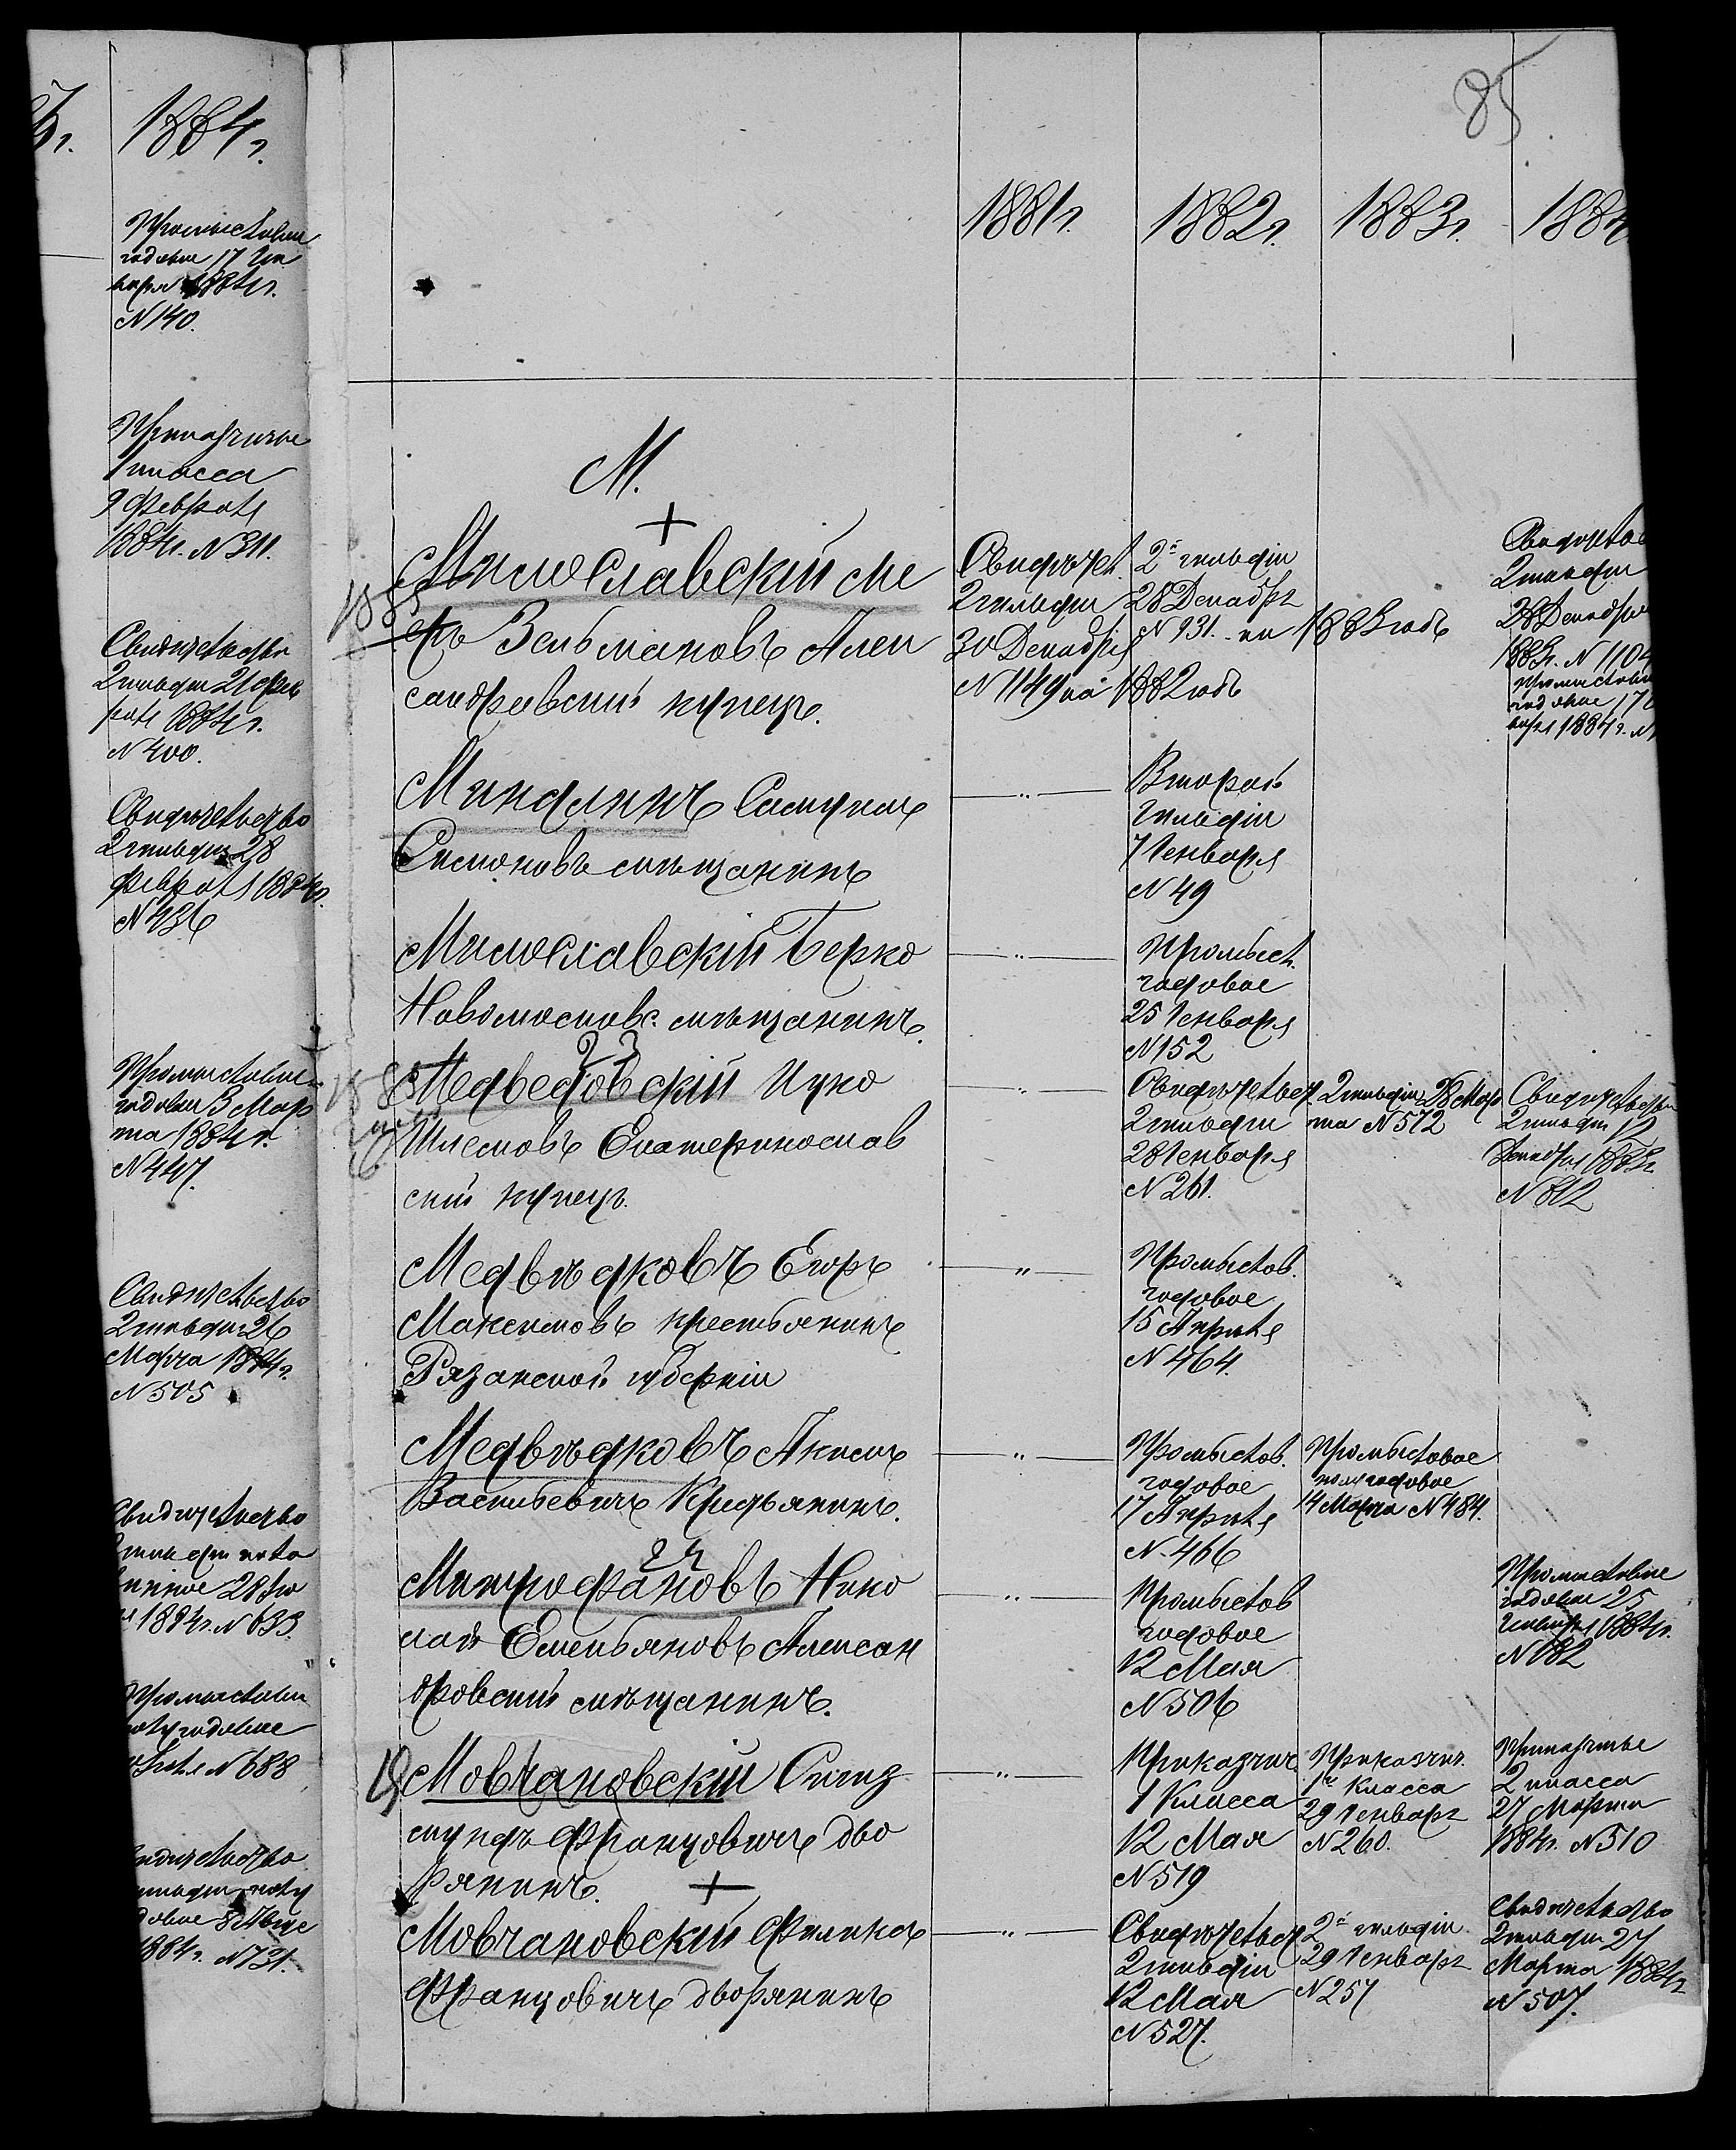 1884г.
Промысловое
годовое 17 Ген
варя 1884г.
N 140.
Приказчичье
1 класса
9 Февраля
1884г. N 311.
Свидетельство
2 гильдии 21 Фев
раля 1884г.
N 400.
Свидетельство
2 гильдии 28
Февраля 1884г.
N 436
Промысловое
годовое 3 Мар
та 1884г.
N 447.
Свидетельство
2 гильдии 26
Марта 1884г.
N 505
Свидетельство
1884г. N 633.
Промысловое
полугодовое
N 688
1884г. N 731.
85
1881г. 1882г. 1883г. 188
М.
+
Милославскій Ме
еръ Зельмановъ Алек
сандровскій купецъ.
Свидѣтел.
2 гильдіи
30 Декабря
N 1149 на 1882 годъ
2й гильдіи
28 Декабря
N 931. на 1883 годъ
2 гильдіи
28 Декабря
1883г. N 1104
Промыслово
годовое 17
варя 1884г. N
Миндлинъ Самуилъ
Симоновъ мѣщанинъ
Второй
гильдіи
7 Генваря
N 49
Милославскій Берко
Новомосковс. мѣщанинъ.
Промысл.
годовое
25 Генваря
N 152
23
Медведовскій Ицко
Шлемовъ Екатеринослав
скій купецъ.
Свидѣтельст.
2 гильдіи
28 Генваря
N 261.
2 гильдіи 28 Мар
та N 572
Свидетельство
2 гильдіи 12
Декабря 1883г.
N 812
Медвѣдковъ Егоръ
Максимовъ крестьянинъ
Рязанской губерніи
Промыслов.
годовое
15 Апрѣля
N 464.
Медвѣдковъ Акимъ
Васильевичъ Крестьянинъ.
Промыслов.
годовое
17 Апрѣля
N 466
Промысловое
полугодовое
14 Марта N 484.
24
Митрофановъ Нико
лай Емельяновъ Алексан
дровскій мѣщанинъ.
Промыслов
годовое
12 Мая
N 506
Промысловое
годовое 25
Генваря 1884г.
N 182
Мовчановскій Сигиз
мундъ Францовичъ дво
рянинъ.
Приказчич.
1 Класса
12 Мая
N 519
Приказчич.
1го Класса
29 Генваря
N 260.
Приказчичье
2 класса
27 Марта
1884г. N 510
+
Мовчановскій Феликсъ
Францовичъ дворянинъ
Свидѣтельст
2 гильдіи
12 Мая
N 527.
2й гильдіи
29 Генваря
N 257
Свидетельство
2 гильдіи 27
Марта 1884г.
N 507.